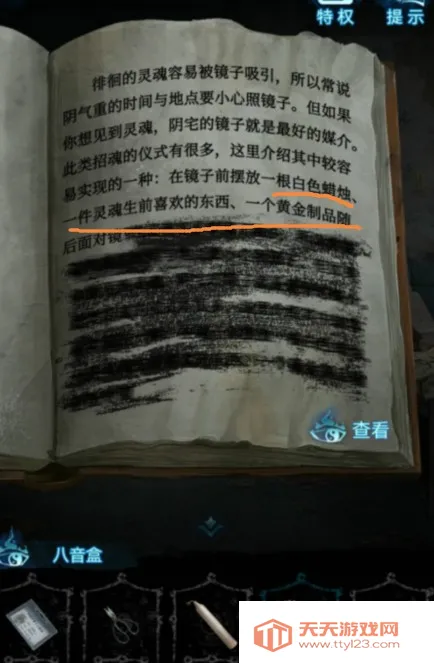 特权
提示
徘徊的灵魂容易被镜子吸引，所以常说
阴气重的时间与地点要小心照镜子。但如果
你想见到灵魂，阴宅的镜子就是最好的媒介。
此类招魂的仪式有很多，这里介绍其中较容
易实现的一种：在镜子前摆放一根白色蜡烛、
一件灵魂生前喜欢的东西、一个黄金制品随
后面对镜
查看
八音盒
天天游戏网
www.ttyl321.com